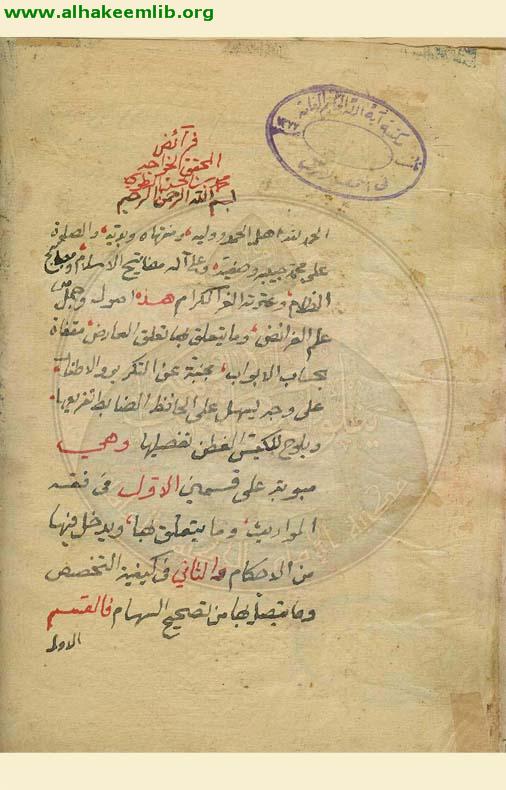 www.alhakeemlib.org
فرائض
المحقق الخواجه
محمد بن الحسن الطوسي
بسم الله الرحمن الرحيم
الحمد لله اهل الحمد ووليه ومنتهاه وبديه والصلوة
على محمد حبيبه وصفيه وعلى آله مفاتيح الاسلام ومصابيح
الظلام وعترته الغر الكرام هذه اصول وجمل
علم الفرائض وما يتعلق بها تعلق العارض مقفاة
بحساب الابواب مجنبة عن التكرير والاطناب
على وجه يسهل على الحافظ الضابط تفريعها
ويلوح للكيس الفطن تفصيلها وهي
مبوبة على قسمين الاول في فقه
المواريث وما يتعلق لها ويدخل فيها
من الاحكام والثاني في كيفية التخصص
وما يتصل بها من تصحيح السهام فالقسم
الاول
مكتبة آية الله الحكيم العامة